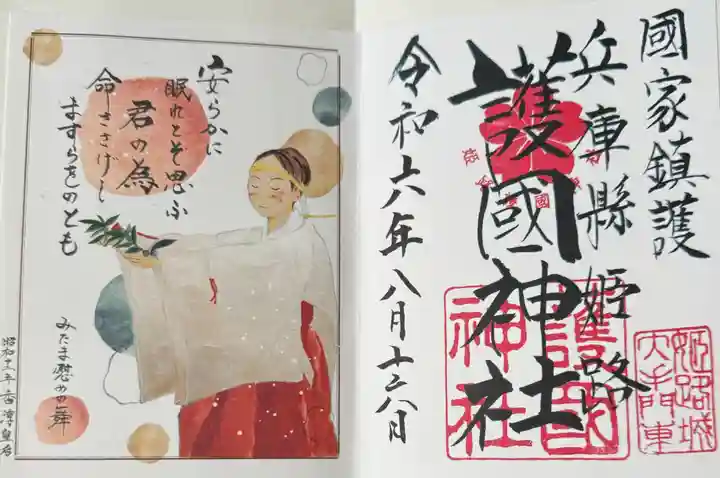 國家鎮護
兵庫縣姫路
護國神社
令和六年八月十六日
護國
神社
姫路城
大手門東
安らかに
眠れとぞ思ふ
君の為
命ささげし
ますらをのとも
みたま慰めの舞
昭和十三年 香淳皇后